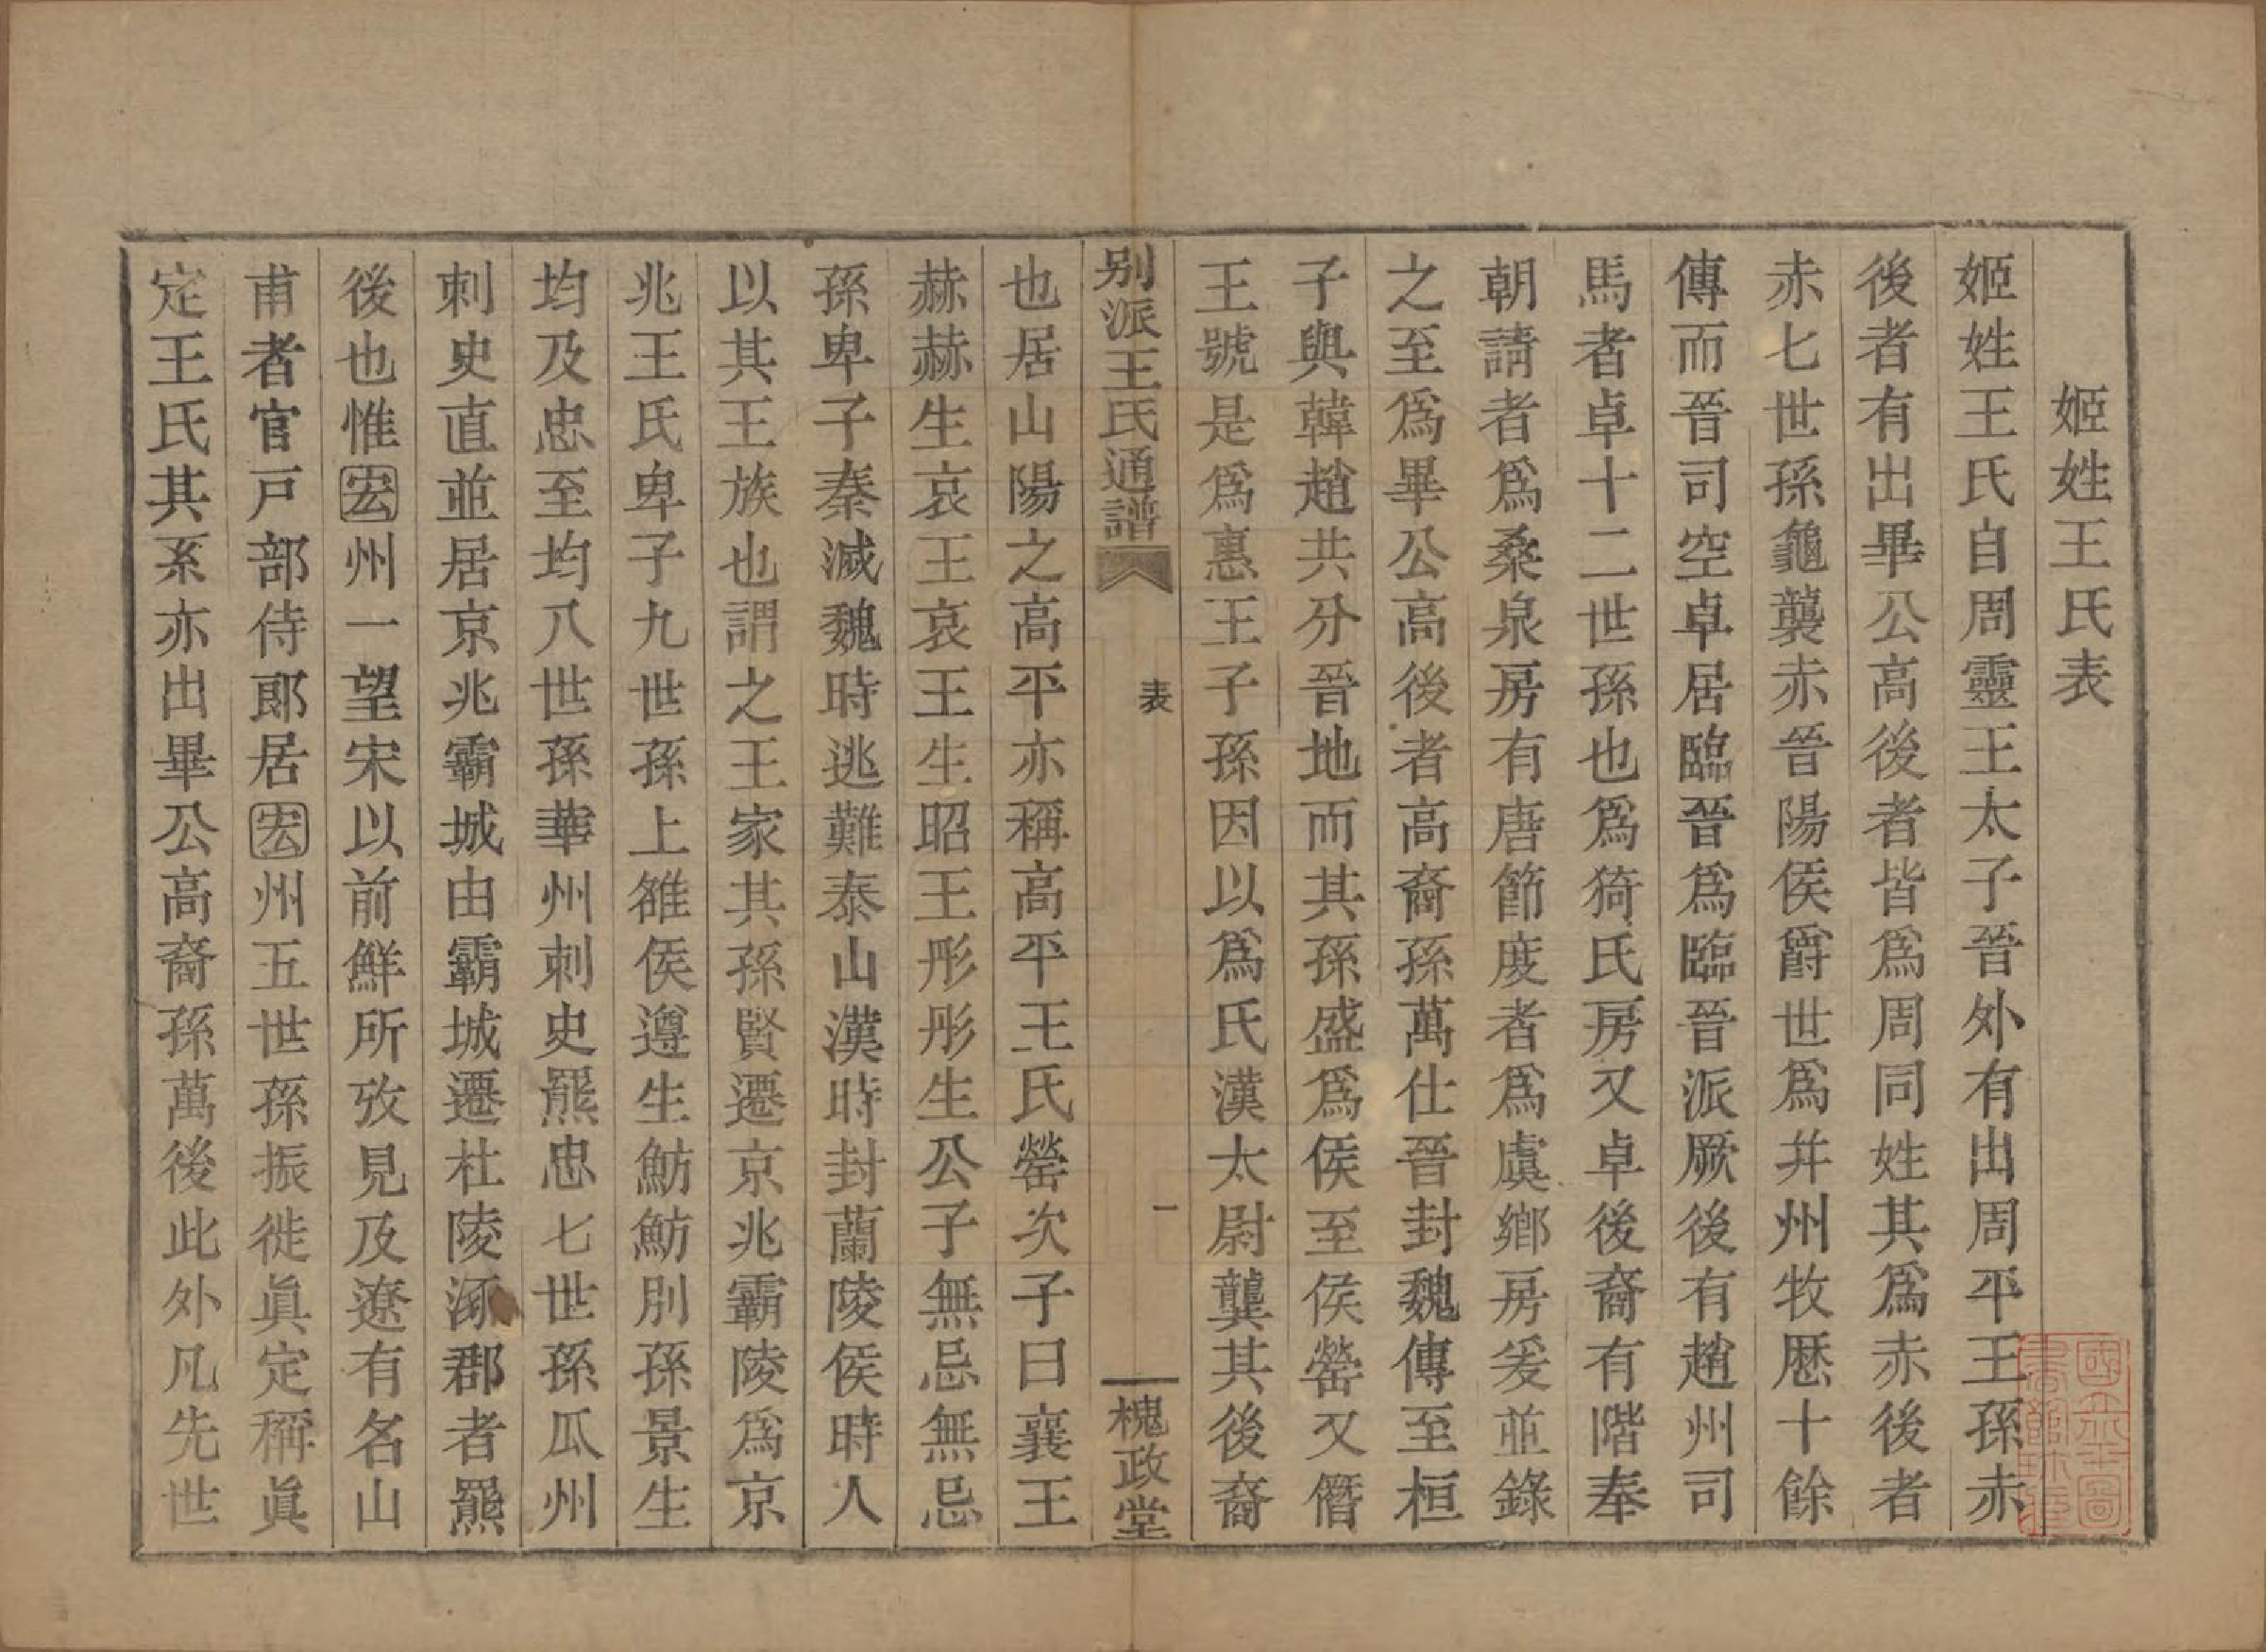 姬姓王氏表
姬姓王氏自周靈王太子晉外有出周平王孫赤
後者有出畢公高後者皆爲周同姓其爲赤後者
赤七世孫龜襲赤晉陽侯爵世爲并州牧厯十餘
傳而晉司空卓居臨晉爲臨晉派厥後有趙州司
馬者卓十二世孫也爲猗氏房又卓後裔有階奉
朝請者爲桑泉房有唐節度者爲虞鄉房爰並錄
之至爲畢公高後者高裔孫萬仕晉封魏傳至桓
子與韓趙共分晉地而其孫盛爲侯至侯罃又僭
王號是爲惠王子孫因以爲氏漢太尉龔其後裔
別派王氏通譜
表
一
槐政堂
也居山陽之高平亦稱高平王氏罃次子曰襄王
赫赫生哀王哀王生昭王彤彤生公子無忌無忌
孫卑子秦滅魏時逃難泰山漢時封蘭陵侯時人
以其王族也謂之王家其孫賢遷京兆霸陵爲京
兆王氏卑子九世孫上雒侯遵生魴魴別孫景生
均及忠至均八世孫華州刺史羆忠七世孫瓜州
刺史直並居京兆霸城由霸城遷杜陵涿郡者羆
後也惟宏州一望宋以前鮮所攷見及遼有名山
甫者官戸部侍郎居宏州五世孫振徙眞定稱眞
定王氏其系亦出畢公高裔孫萬後此外凡先世
國立北平圖書館珍藏